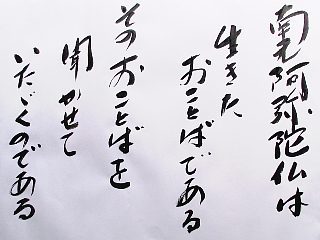 南无阿弥陀仏は
生きた
おことばである
そのおことばを
聞かせて
いたゞくのである